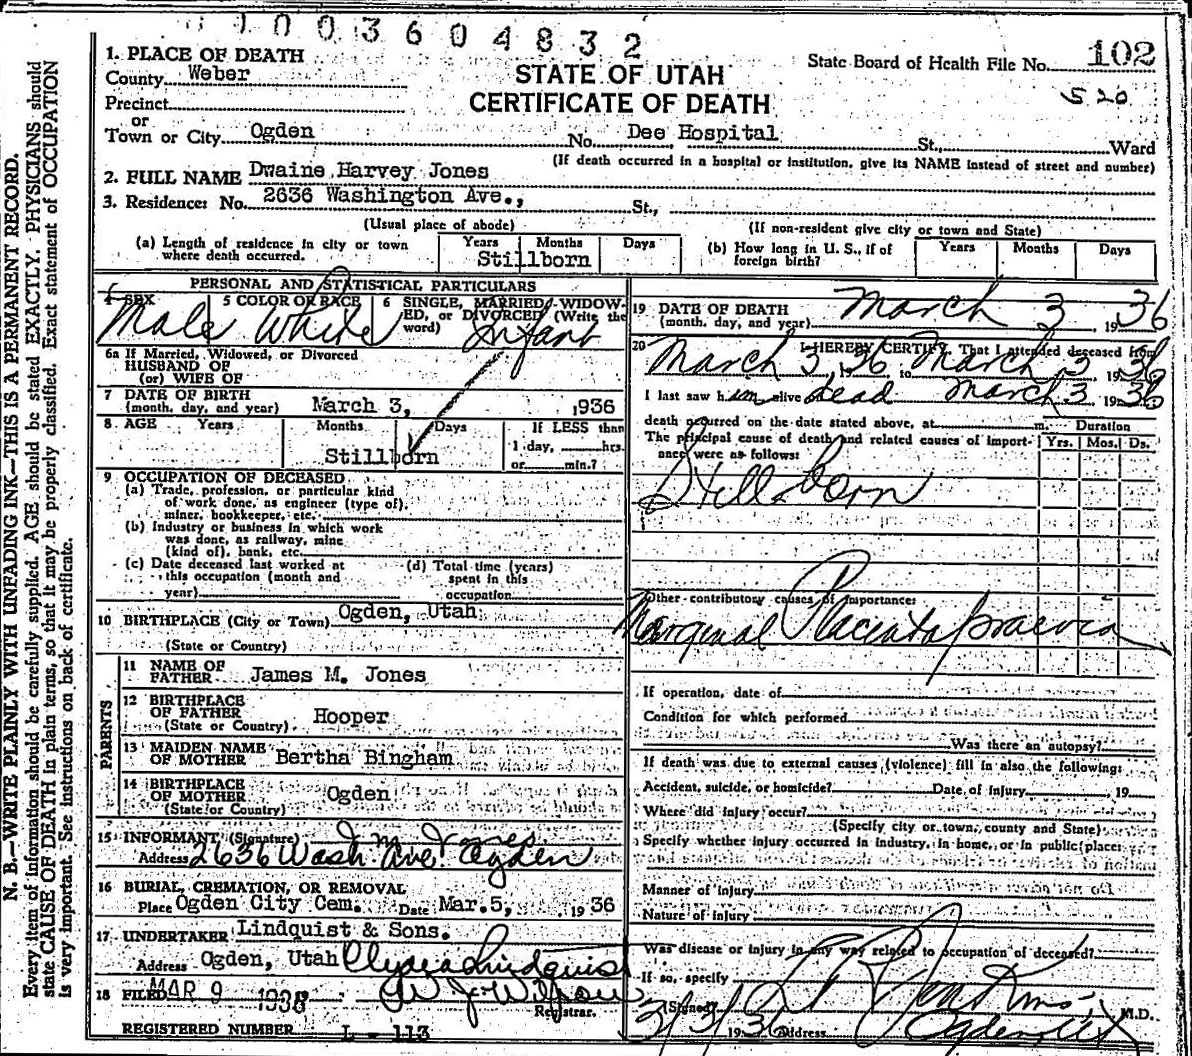 1003604832
1. PLACE OF DEATH
County Weber
STATE OF UTAH
State Board of Health File No. 102
Precinct
CERTIFICATE OF DEATH
520
or
Town or City Ogden No. Dee Hospital St., Ward
(If death occurred in a hospital or institution, give its NAME instead of street and number)
2. FULL NAME Dwaine Harvey Jones
3. Residence: No. 2636 Washington Ave., St.,
(Usual place of abode) (If non-resident give city or town and State)
(a) Length of residence in city or town where death occurred. Years Months Days
Stillborn
(b) How long in U. S., if of foreign birth? Years Months Days
PERSONAL AND STATISTICAL PARTICULARS
4 SEX 5 COLOR OR RACE 6 SINGLE, MARRIED, WIDOW-
ED, or DIVORCED (Write the
word)
Male White Infant
6a If Married, Widowed, or Divorced
HUSBAND OF
(or) WIFE OF
7 DATE OF BIRTH
(month, day, and year) March 3, 1936
8 AGE Years Months Days If LESS than
1 day, hrs.
or min.?
Stillborn
9 OCCUPATION OF DECEASED
(a) Trade, profession, or particular kind
of work done, as engineer (type of),
miner, bookkeeper, etc.
(b) Industry or business in which work
was done, as railway, mine
(kind of), bank, etc.
(c) Date deceased last worked at
this occupation (month and
year)
(d) Total time (years)
spent in this
occupation
10 BIRTHPLACE (City or Town) Ogden, Utah
(State or Country)
PARENTS
11 NAME OF
FATHER James M. Jones
12 BIRTHPLACE
OF FATHER Hooper
(State or Country)
13 MAIDEN NAME
OF MOTHER Bertha Bingham
14 BIRTHPLACE
OF MOTHER Ogden
(State or Country)
15 INFORMANT (Signature) J. M. Jones
Address 2636 Wash Ave. Ogden
16 BURIAL, CREMATION, OR REMOVAL
Place Ogden City Cem. Date Mar. 5, 1936
17 UNDERTAKER Lindquist & Sons.
Address Ogden, Utah Clyde Lindquist
18 FILED MAR 9 1936
Registrar.
REGISTERED NUMBER L - 113
19 DATE OF DEATH
(month, day, and year) March 3 1936
20 I HEREBY CERTIFY, That I attended deceased from
March 3, 1936 to March 3 1936
I last saw him alive dead March 3 1936
death occurred on the date stated above, at m. Duration
The principal cause of death and related causes of import-
ance were as follows: Yrs. Mos. Ds.
Stillborn
Other contributory causes of importance:
Marginal Placenta praevia
If operation, date of
Condition for which performed
Was there an autopsy?
If death was due to external causes (violence) fill in also the following:
Accident, suicide, or homicide? Date of injury 19
Where did injury occur?
(Specify city or town, county and State)
Specify whether injury occurred in industry, in home, or in public place:
Manner of injury
Nature of injury
Was disease or injury in any way related to occupation of deceased?
If so, specify
(Signed) Jenkins M.D.
3/3/1936 Address Ogden Ut
N. B.—WRITE PLAINLY WITH UNFADING INK—THIS IS A PERMANENT RECORD.
Every item of information should be carefully supplied. AGE should be stated EXACTLY. PHYSICIANS should
state CAUSE OF DEATH in plain terms, so that it may be properly classified. Exact statement of OCCUPATION
is very important. See instructions on back of certificate.